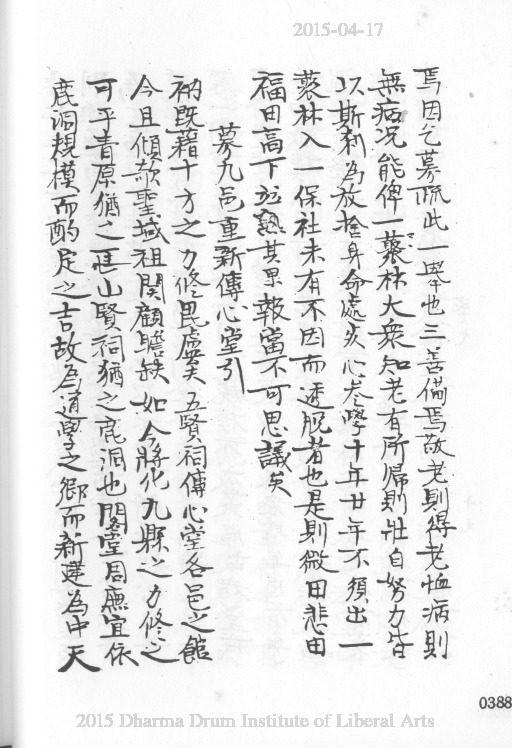 2015-04-17
焉因乞募疏此一舉也三善備焉敬老則得老恤病則
無病況能俾一藂林大衆知老有所歸則壯自努力皆
以斯刹為放捨身命處炎心叅學十年廿年不須出一
藂林入一保社未有不因而透脫者也是則微田悲田
福田高下並熟其果報當不可思議矣
募九邑重新傳心堂引
衲既藉十方之力修毘盧矣五賢祠傳心堂各邑之館
今且傾欹聖域祖関顧瞻缺如今將化九縣之力修之
可乎青原猶之匡山賢祠猶之鹿洞也閣堂周廡宜依
鹿洞規模而酌定之吉故為道學之鄉而新建為中天
0388
2015 Dharma Drum Institute of Liberal Arts